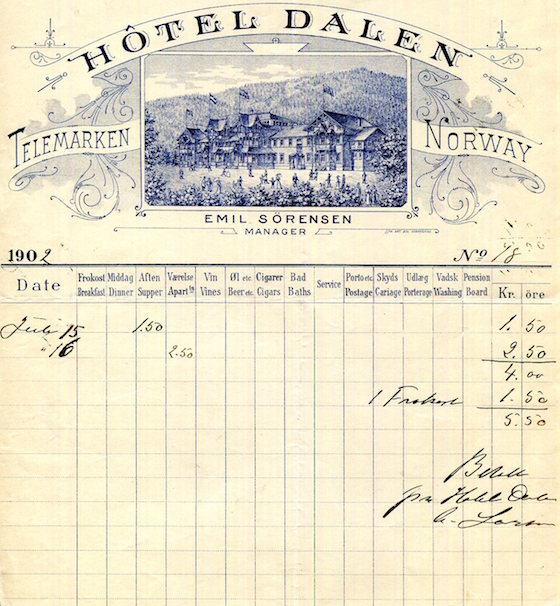 HÔTEL DALEN
TELEMARKEN NORWAY
EMIL SÖRENSEN
MANAGER
1902 No 48
Date Frokost Middag Aften Værelse Vin Øl etc. Cigarer Bad Service Porto etc. Skyds Udlæg Vadsk Pension Kr. öre
Breakfast Dinner Supper Apartts Vines Beer etc. Cigars Baths Postage Cariage Porterage Washing Board
Juli 15 1.50 1.50
" 16 2.50 2.50
4.00
1 Frokost 1.50
5.50
Betalt
pr Hotel Dalen